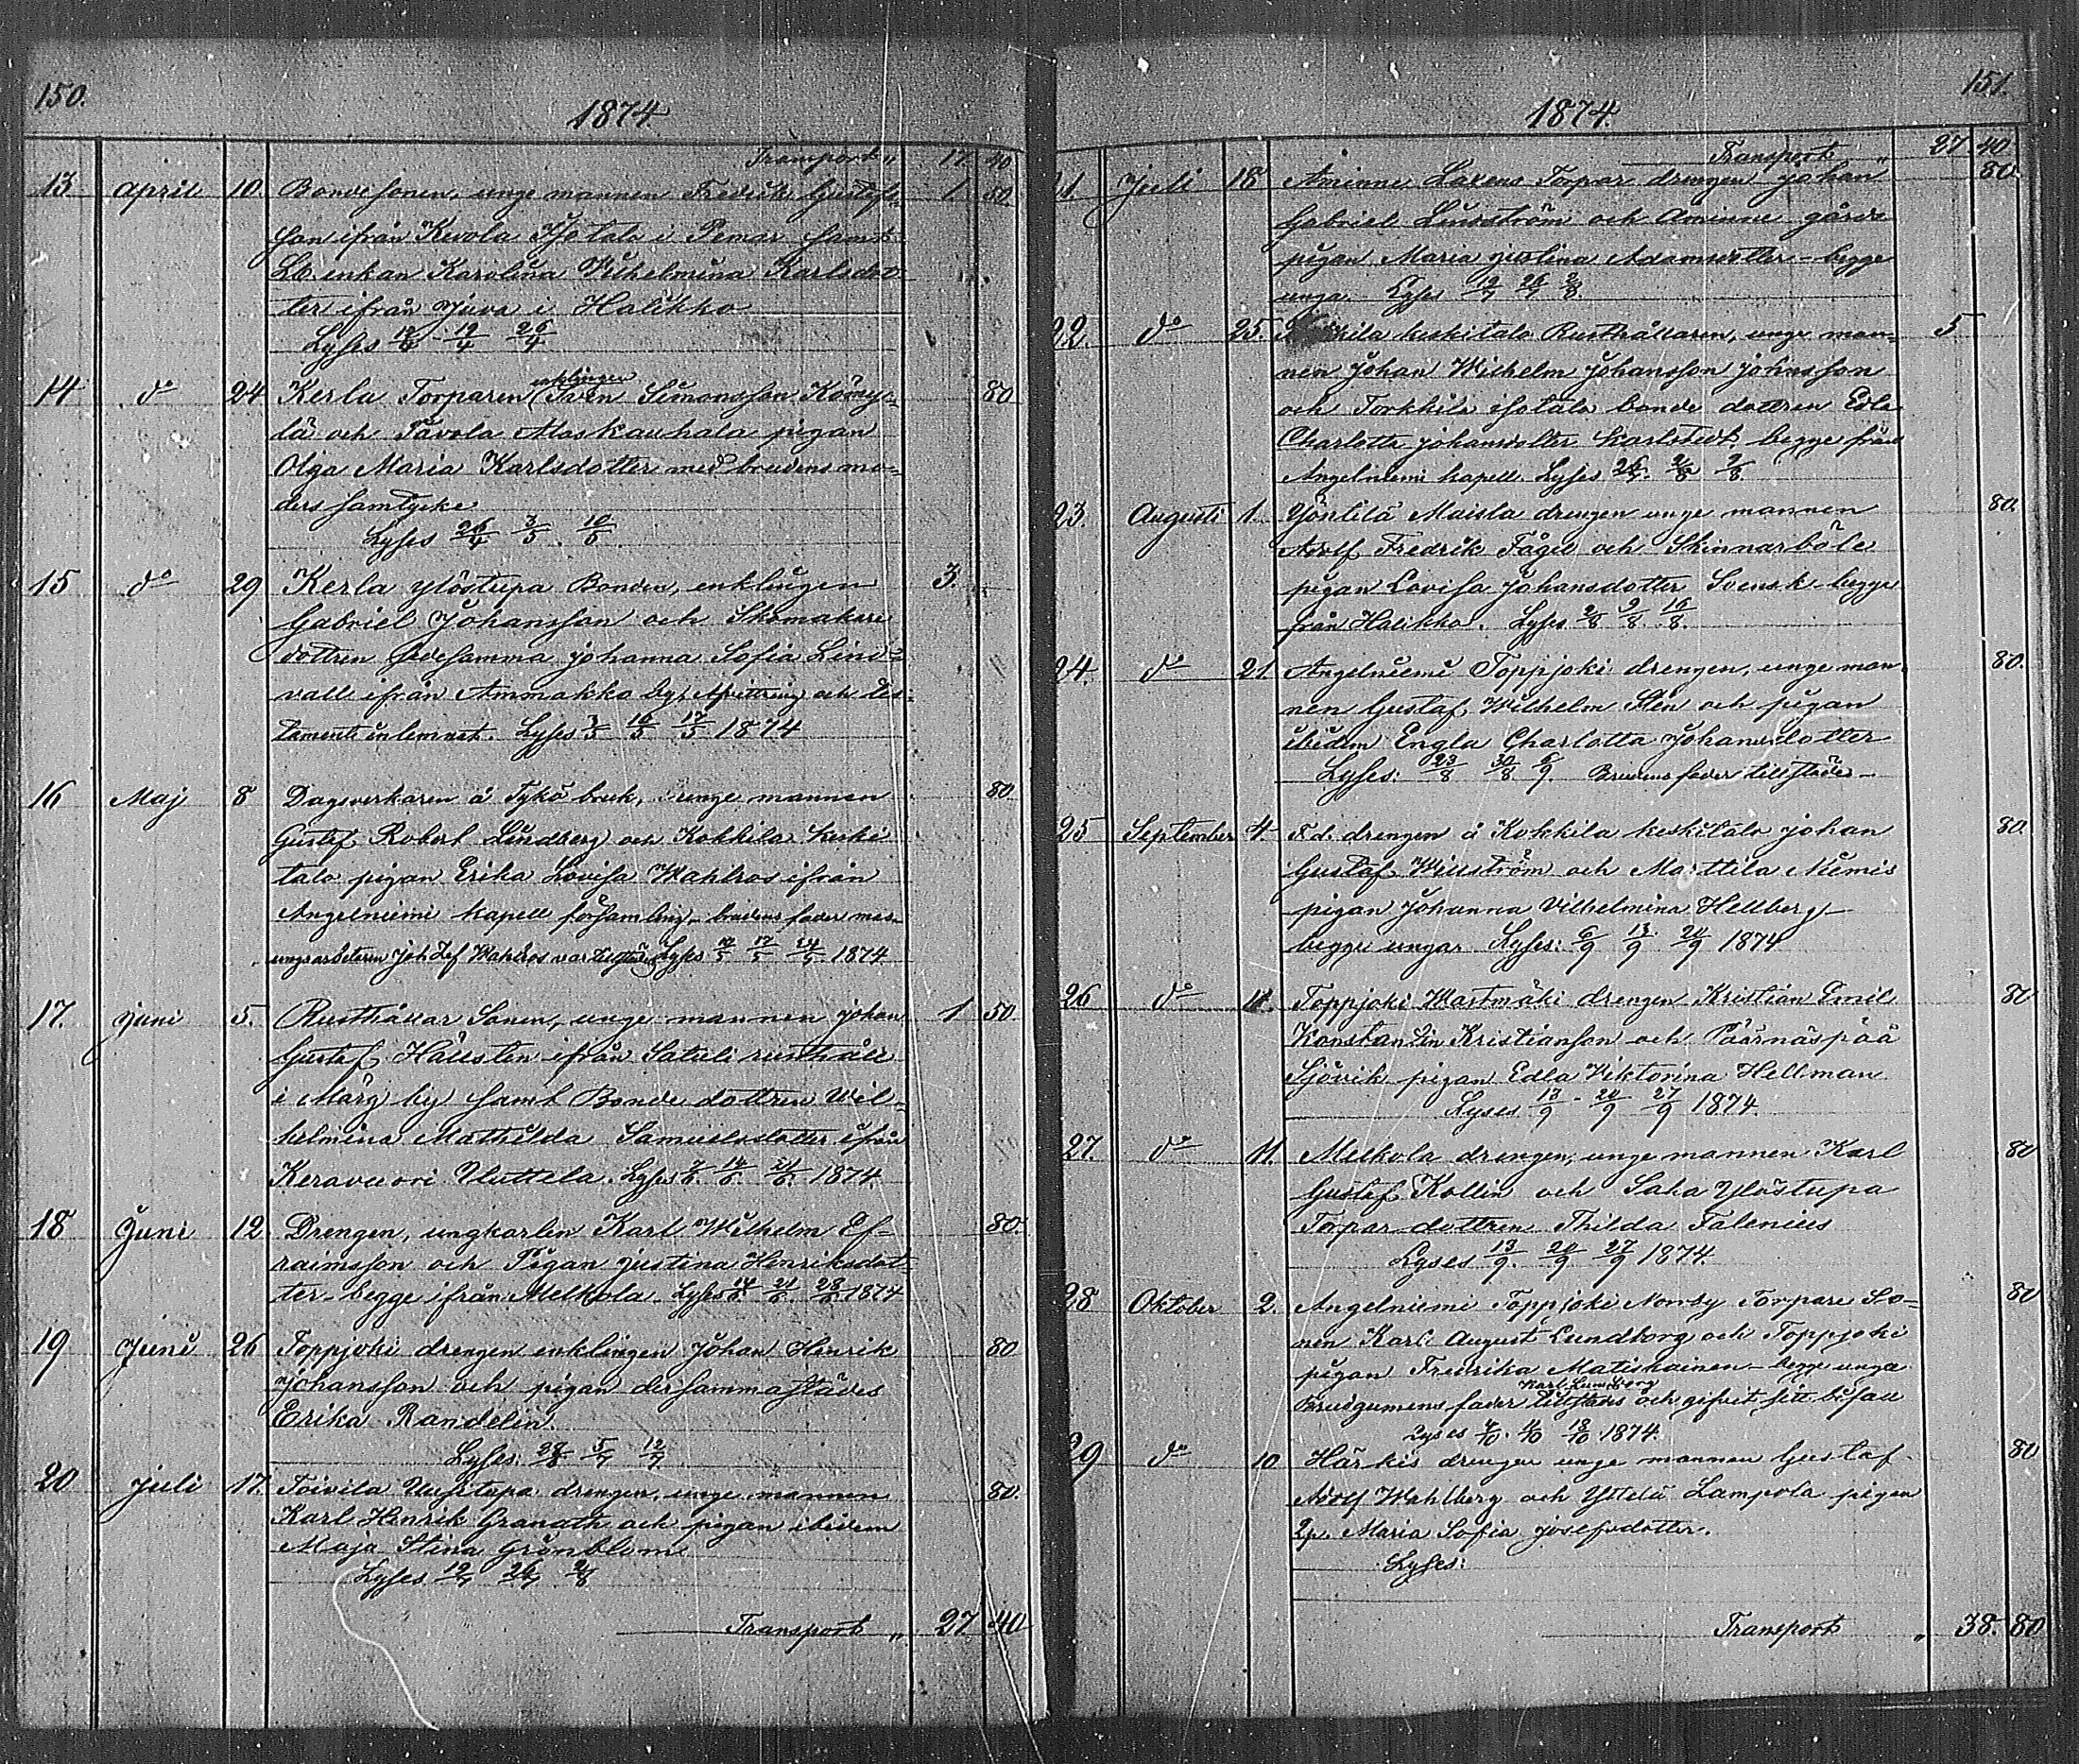 150.
1874.
Transport „ 17 40
13 April 10. Bondesonen, unge mannen Fredrik Gustafs- 1. 80.
son ifrån Kevola Isotalo i Pemar samt
Lb. enkan Karolina Wilhelmina Karlsdot-
ter ifrån Juva i Halikko
Lyses 12/4 19/4 26/4
14 do 24 Kerla Torparen (enklingen) Simonsson 80
och Tavola Moskauhala pigan
Olga Maria Karlsdotter med brudens mo-
ders samtycke
Lyses 26/4 3/5. 10/5.
15 do 29 Kerla Ylöstupa Bonden, enklingen 3.
Gabriel Johansson och Skomakare
dottren Johanna Sofia Lind-
vall ifrån Ammakko afvittring och tes-
tamente inlemnat. Lyses 3/5 10/5 17/5 1874
16 Maj 8 Dagsverkaren å Tykö bruk, unge mannen 80
Gustaf Robert Lindberg och Kokkila Keski
talo pigan Erika Lovisa Wahlros ifrån
Angelniemi kapell församling – brudens fader
Joh Wahlros var Lyses 10/5 17/5 24/5 1874
17. Juni 5. Rusthållar Sonen, unge mannen Johan 1 50
Gustaf Hällsten ifrån Satuli rusthåll
i Märy by samt Bonde dottren Wil-
helmina Mathilda Samuelsdotter ifrån
Keravuori Uuttela. Lyses 7/6. 14/6. 21/6. 1874.
18 Juni 12. Drengen, ungkarlen Karl Wilhelm Ef- 80.
raimsson och Pigan Justina Henriksdot-
ter – begge ifrån Melkola. Lyses 14/6 21/6. 28/6 1874
19 Juni 26 Toppjoki drengen enklingen Johan Henrik 80
Johansson och pigan dersammastädes
Erika Randelin.
Lyses: 28/6 5/7 12/7
20 Juli 17. Toivila Uusitupa drengen, unge mannen 80.
Karl Henrik Granath och pigan ibidem
Maja Stina Grönblom
Lyses 19/7 26/7 2/8
Transport „ 27 40
151.
1874.
Transport „ 27 40
21 Juli 18 Aminne Laxens Torpar drengen Johan 80
Gabriel Lundström och Aminne gårds
pigan Maria Justina Adamsdotter – begge
unga. Lyses 19/7 26/7 2/8
22. do 25. keskitalo Rusthållaren, unge man- 5
nen Johan Wilhelm Johansson Johnsson
och Torkkila isotalo bonde dottren Edla
Charlotta Johansdotter Karlstedt begge från
Angelniemi kapell. Lyses 26/7. 2/8 9/8.
23. Augusti 1. Yönlilä Maisla drengen unge mannen 80.
Adolf Fredrik Fågel och Skinnarböle
pigan Lovisa Johansdotter Svensk begge
från Halikko. Lyses 2/8 9/8. 16/8.
24. do 21. Angelniemi Toppjoki drengen, unge man- 80.
nen Gustaf Wilhelm Sten och pigan
ibidem Engla Charlotta Johansdotter
Lyses: 23/8 30/8. 6/9. Brudens fader tillstädes –
25 September 4. F.d. drengen å Kokkila keskitalo Johan 80.
Gustaf Willström och Marttila Niemis
pigan Johanna Vilhelmina Hellberg –
begge ungar Lyses: 6/9 13/9 20/9 1874
26 do 11. Toppjoki Wartmäki drengen Kristian Emil 80
Konstandin Kristianson och Päärnäspää
Sjövik pigan Edla Viktorina Hellman
Lyses 13/9 - 20/9 27/9 1874
27. do 11. Melkola drengen, unge mannen Karl 80
Gustaf Kollin och Saha Ylöstupa
Torpar dottren Thilda Falenius
Lyses 13/9. 20/9 27/9 1874.
28 Oktober 2. Angelniemi Toppjoki Norrby Torpare So- 80
nen Karl August Lundborg och Toppjoki
pigan Fredrika Matiskainen – begge unga
Brudgumens fader Karl Lundborg tillstädes och gifvit sitt bifall
Lyses 4/10. 11/10 18/10 1874.
29 do 10 Härkis drengen unge mannen Gustaf 80
Adolf Wahlberg och Yttelä Lampola pigan
Maria Sofia Josefsdotter.
Lyses:
Transport „ 38. 80